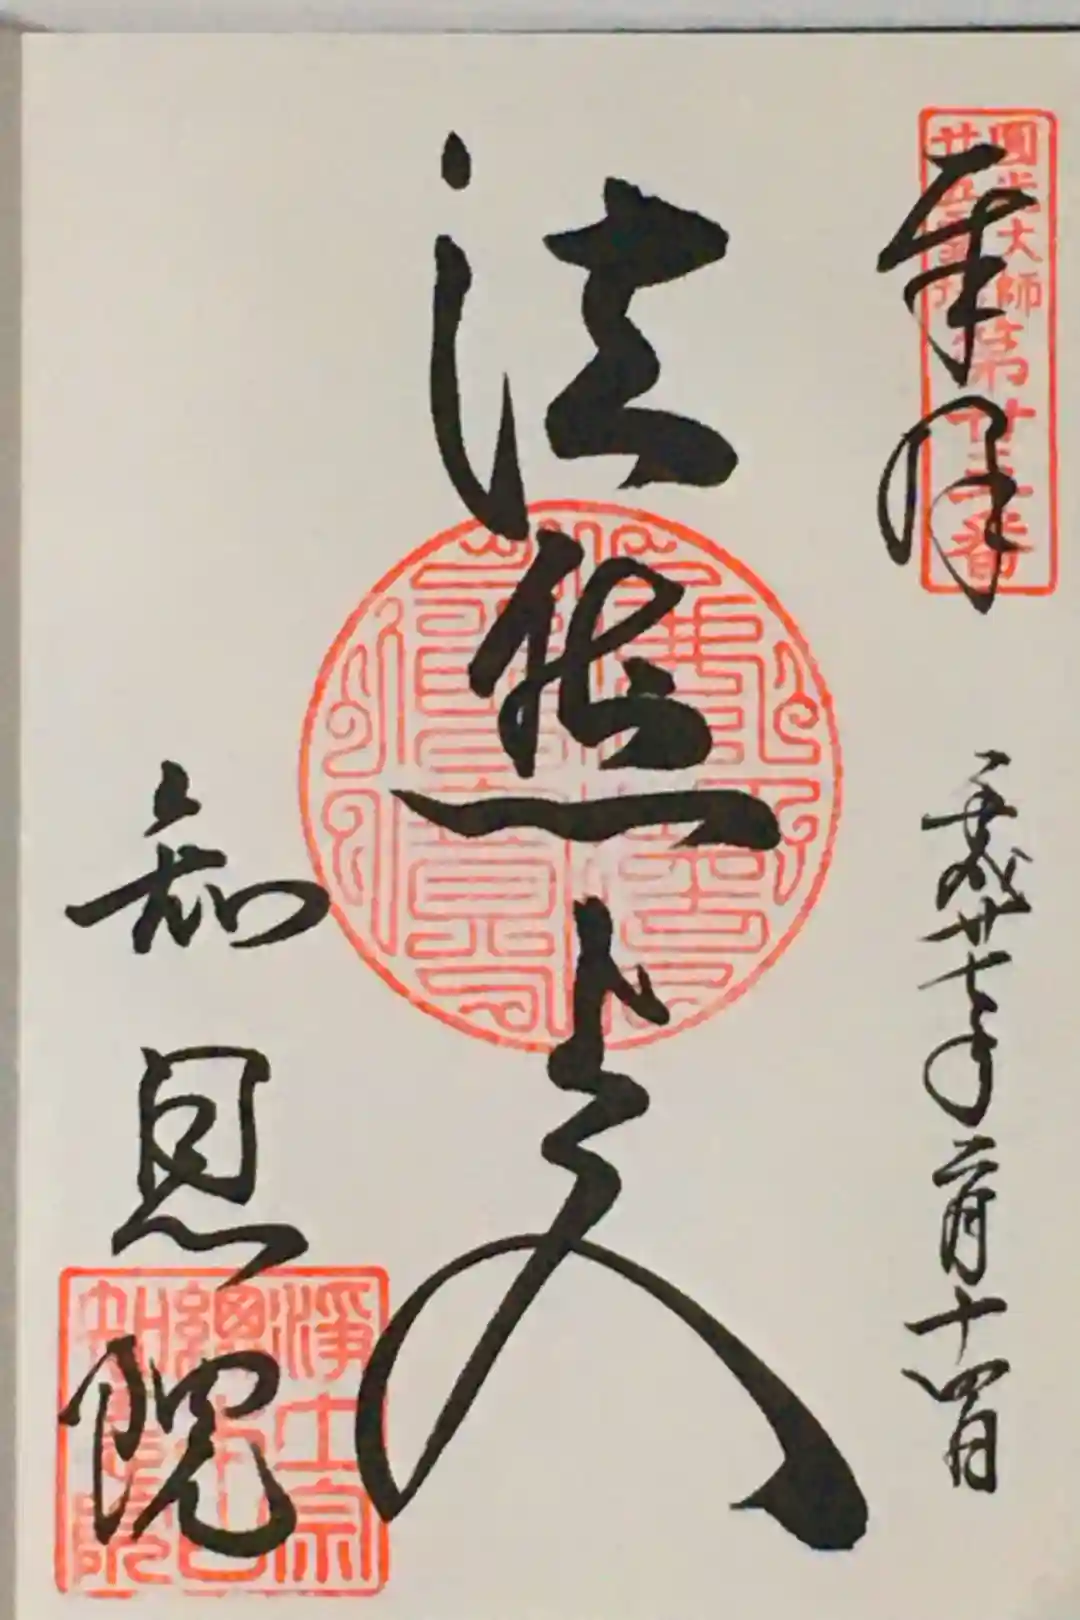 圓光大師
廿五霊場
奉拝
平成廿七年二月十四日
法然上人
知恩院
淨土宗
總本山
知恩院